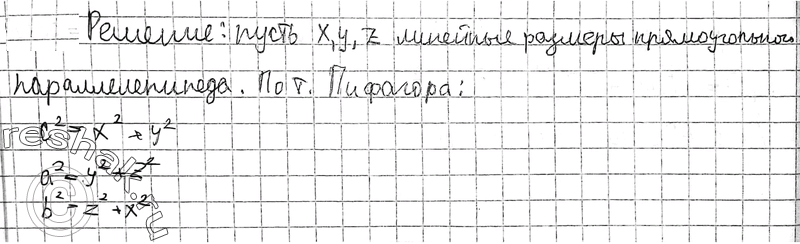 Решение: пусть x, y, z линейные размеры прямоугольного
параллелепипеда. По т. Пифагора:
c² = x² + y²
a² = y² + z²
b² = z² + x²
reshak.ru